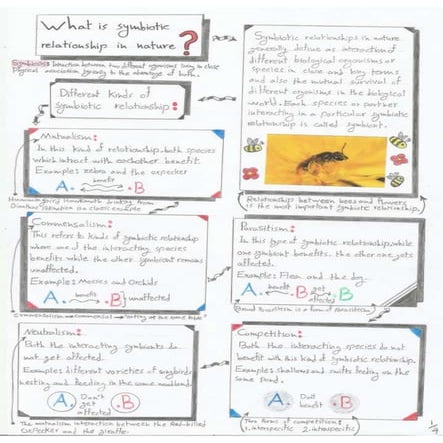 What is symbiotic
relationship in nature?
Symbiosis: Interaction between two different organisms living in close
physical association, typically to the advantage of both.
Different Kinds of
Symbiotic relationship:
Symbiotic relationships in nature
generally define as interaction of
different biological organisms or
species in close and long terms
and also the mutual survival of
different organisms in the biological
world. Each species or partner
interacting in a particular symbiotic
relationship is called symbiont.
Relationship between bees and flowers
is the most important symbiotic relationship.
Mutualism:
In this kind of relationship, both species
which interact with each other benefit.
Examples: zebra and the oxpecker
A benefit B
Hummingbird Hawkmoth drinking from
is a classic example
Commensalism:
This refers to kinds of symbiotic relationship
where one of the interacting species
benefits while the other symbiont remains
unaffected.
Example: Mosses and Orchids
A benefit B unaffected
Commensalism → Commensal → eating at the same table
Parasitism:
In this type of symbiotic relationship, while
one symbiont benefits, the other one gets
affected.
Example: Flea and the dog.
A benefit B get affected B
Brood Parasitism is a form of parasitism
Neutralism:
Both the interacting symbionts do
not get affected.
Examples different varieties of songbirds
nesting and feeding in the same woodland.
A Don't get affected B
The mutualism interaction between the Red-billed
oxpecker and the giraffe.
Competition:
Both the interacting species do not
benefit with this kind of symbiotic relationship.
Examples: swallows and swifts feeding on the
same pond.
A Don't benefit B
Two forms of competition:
1. interspecific 2. intraspecific
1/4